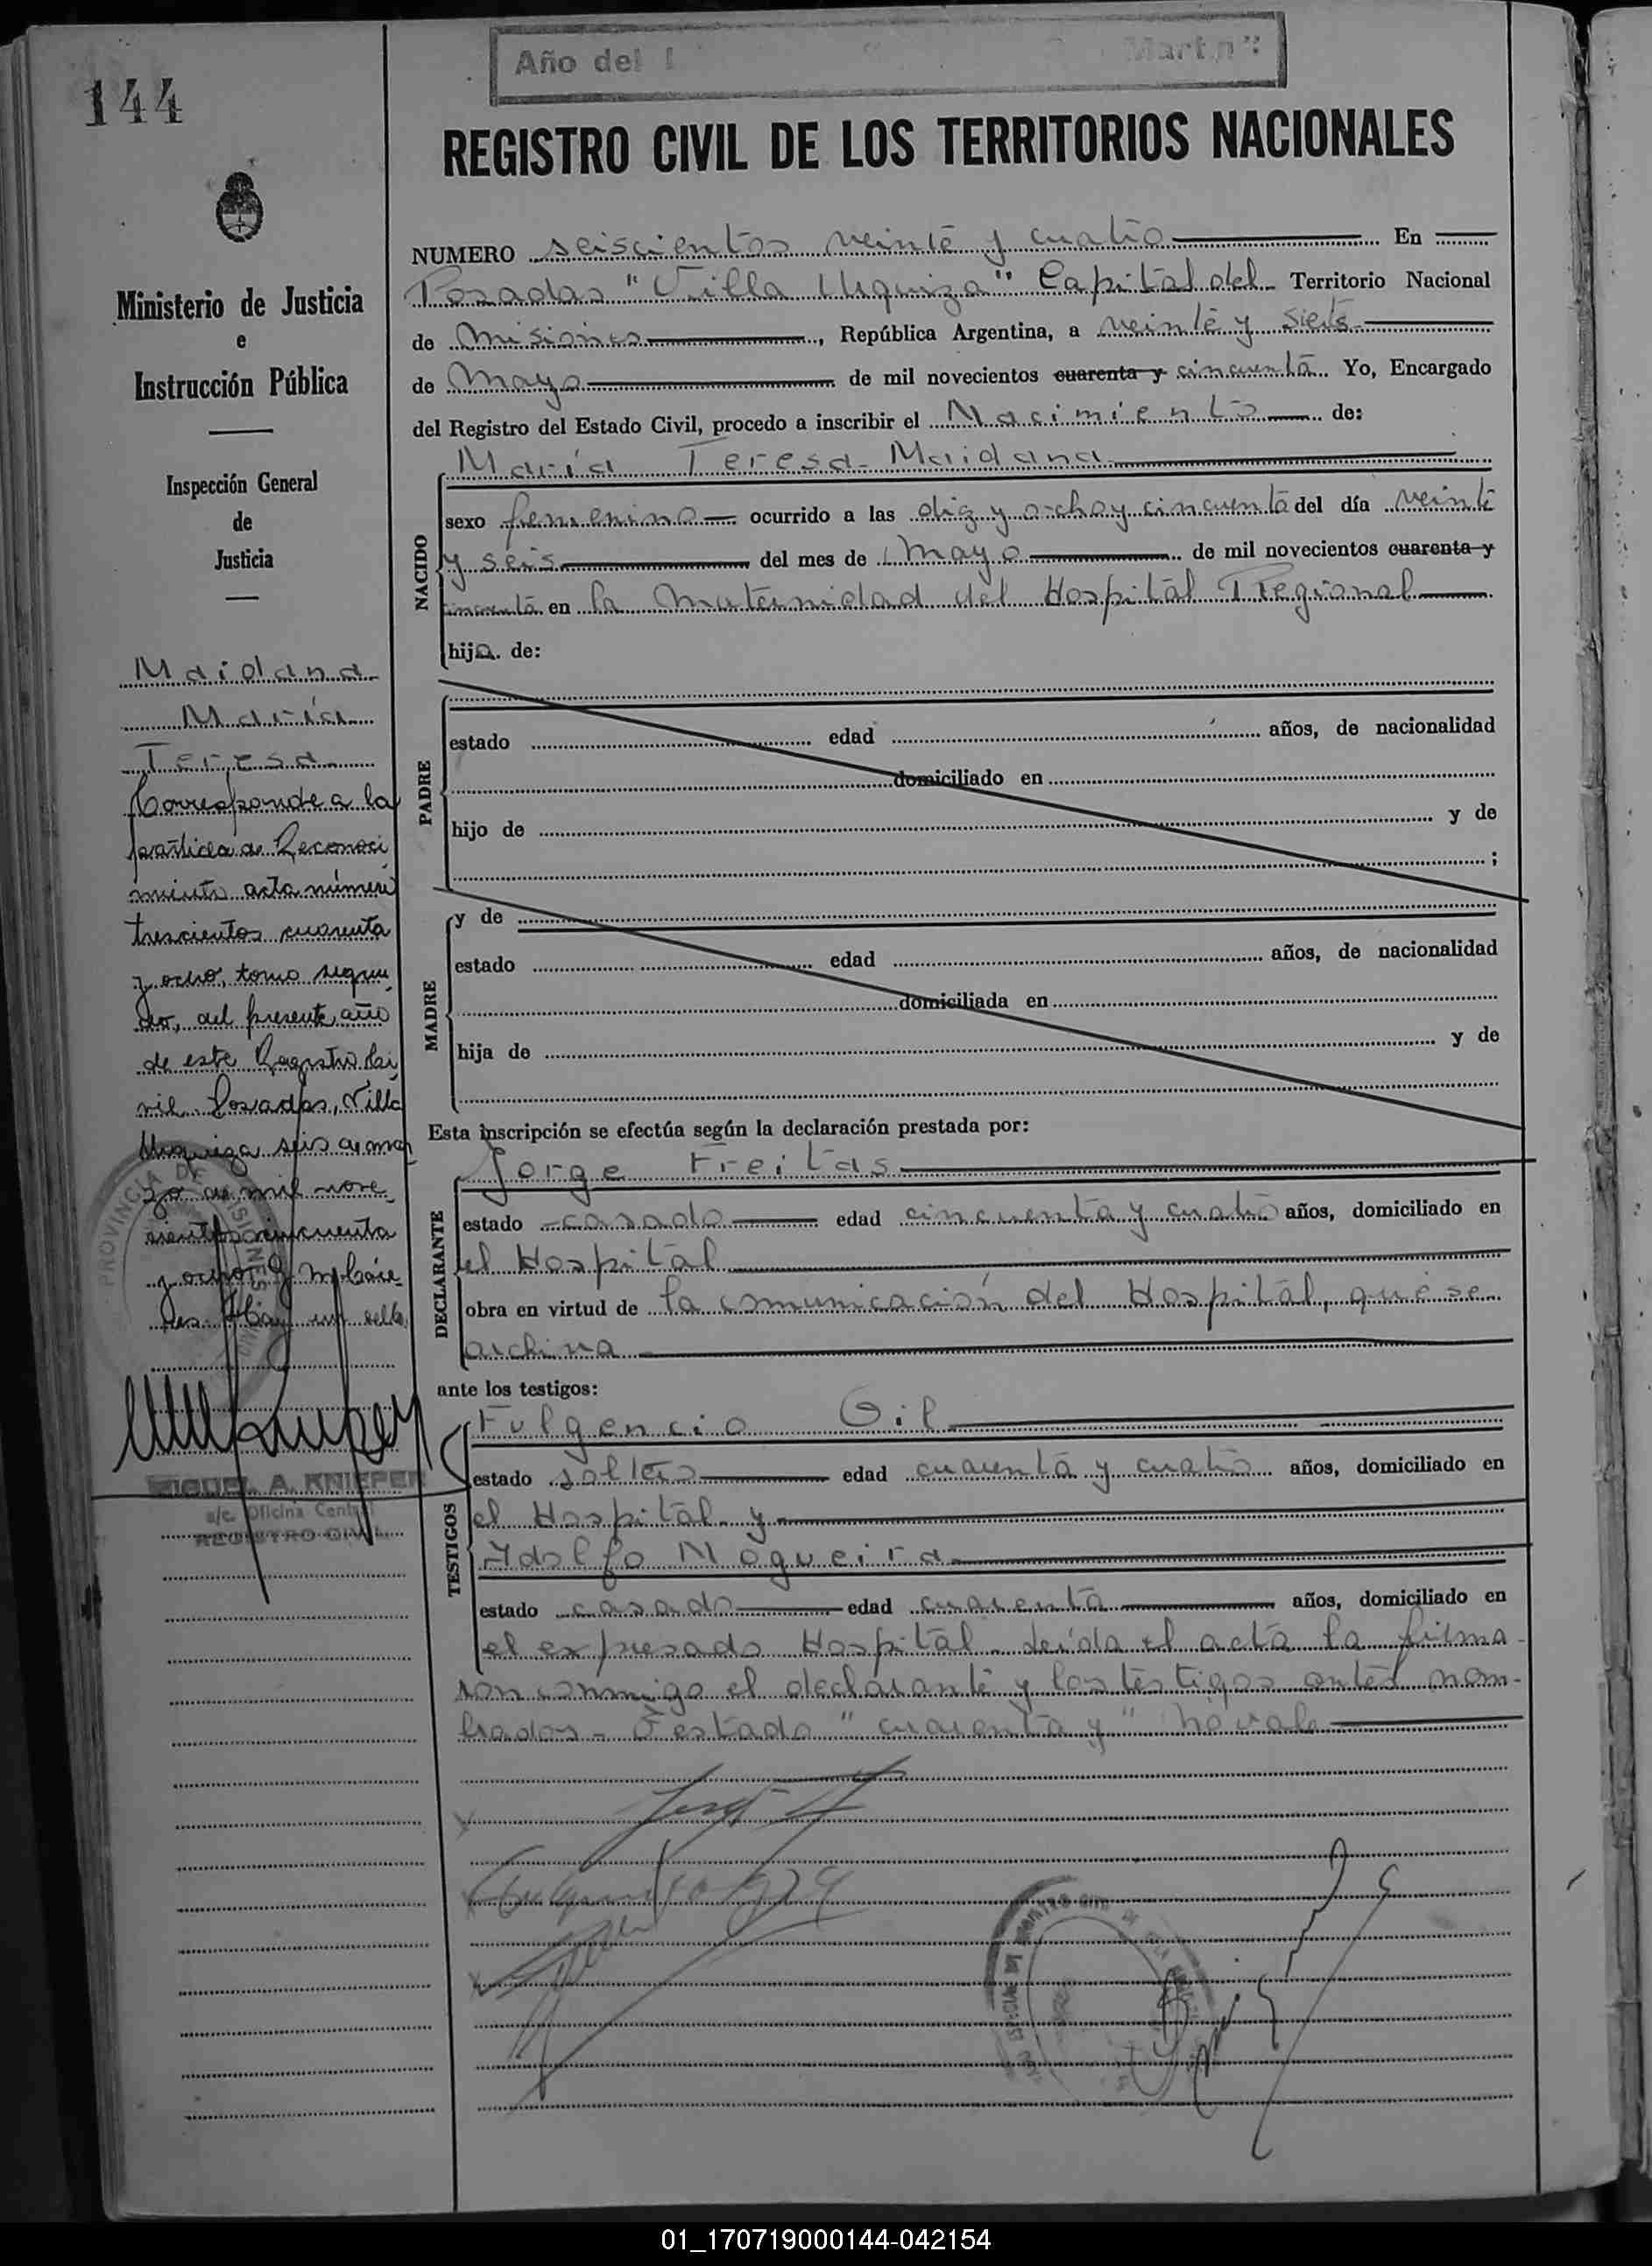 Año del Martín"
144
REGISTRO CIVIL DE LOS TERRITORIOS NACIONALES
Ministerio de Justicia
e
Instrucción Pública
Inspección General
de
Justicia
Maidana
María
Teresa
Corresponde a la
partida de Reconoci
miento acta número
trescientos cuarenta
y ocho, tomo segun
do, del presente año
de este Registro Ci
vil Posadas, Villa
Urquiza seis de mar
zo de mil nove
cientos cincuenta
y ocho
Hay un sello
PROVINCIA DE MISIONES
MIGUEL A. KNIEPER
a/c. Oficina Central
REGISTRO CIVIL
NUMERO seiscientos veinte y cuatro En
Posadas "Villa Urquiza" Capital del Territorio Nacional
de Misiones, República Argentina, a veinte y seis
de Mayo de mil novecientos cuarenta y cincuenta Yo, Encargado
del Registro del Estado Civil, procedo a inscribir el Nacimiento de:
NACIDO
María Teresa Maidana
sexo femenino ocurrido a las diez y ocho y cincuenta del día veinte
y seis del mes de Mayo de mil novecientos cuarenta y
cincuenta en la Maternidad del Hospital Regional
hija de:
PADRE
estado edad años, de nacionalidad
domiciliado en
hijo de y de
;
MADRE
y de
estado edad años, de nacionalidad
domiciliada en
hija de y de
Esta inscripción se efectúa según la declaración prestada por:
DECLARANTE
Jorge Freitas
estado casado edad cincuenta y cuatro años, domiciliado en
el Hospital
obra en virtud de la comunicación del Hospital, que se
archiva
ante los testigos:
TESTIGOS
Fulgencio Gil
estado soltero edad cuarenta y cuatro años, domiciliado en
el Hospital y
Adolfo Nogueira
estado casado edad cuarenta años, domiciliado en
el expresado Hospital. Leída el acta la firma
ron conmigo el declarante y los testigos antes nom-
brados - Testado "cuarenta y" no vale
01_170719000144-042154